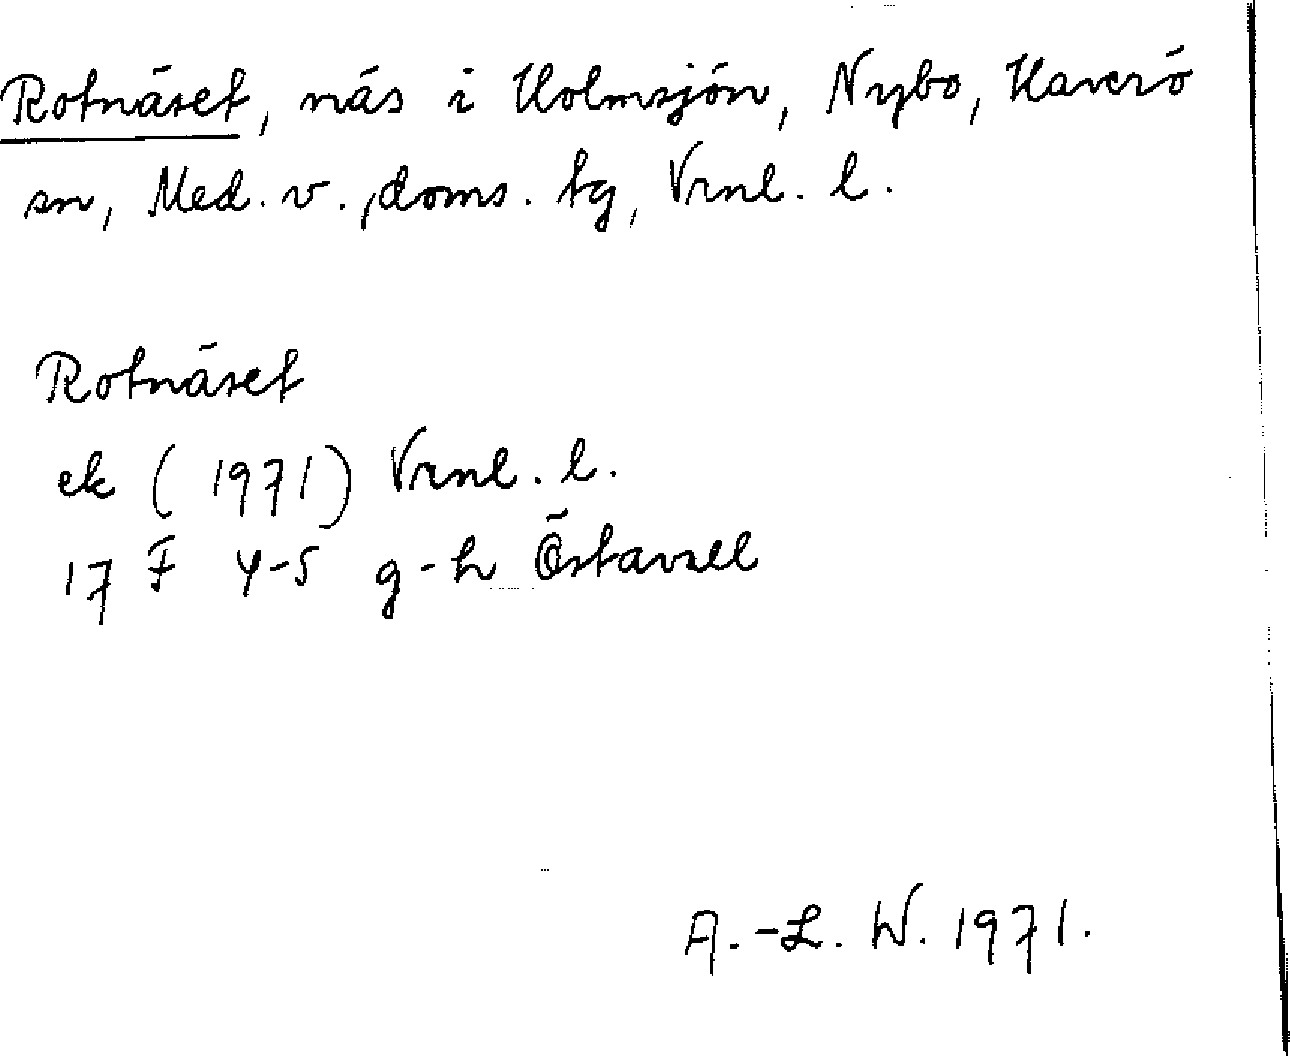 Rotnäset, näs i Holmsjön, Nybo, Haverö
sn, Med. v., doms. tg, Vrnl. l.
Rotnäset
ek (1971) Vrnl. l.
17 F 4-5 g-h Östavall
A.-L. W. 1971.